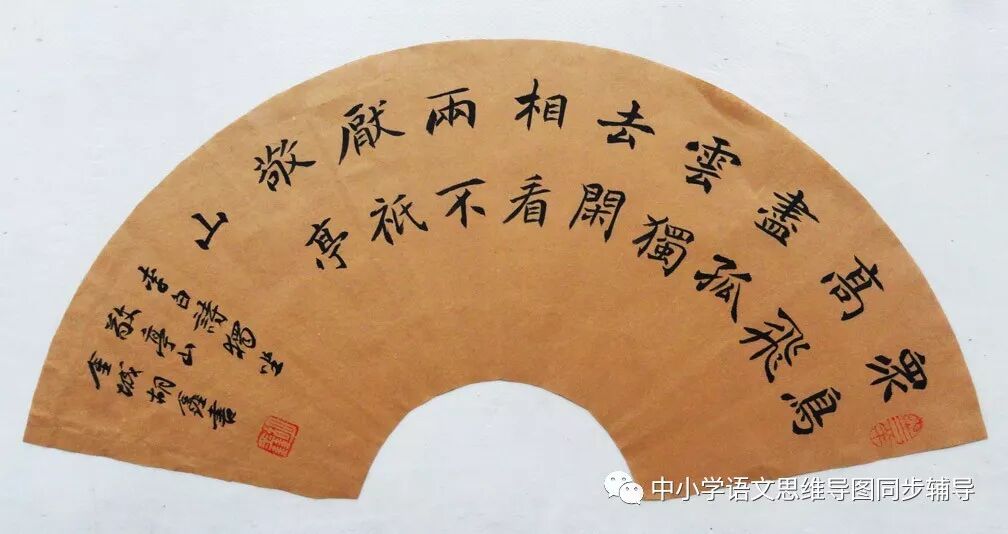 眾鳥
高飛
盡孤
雲獨
去閑
相看
兩不
厭祇
敬亭
山
李白詩獨坐
敬亭山
金城胡鑫書
中小学语文思维导图同步辅导